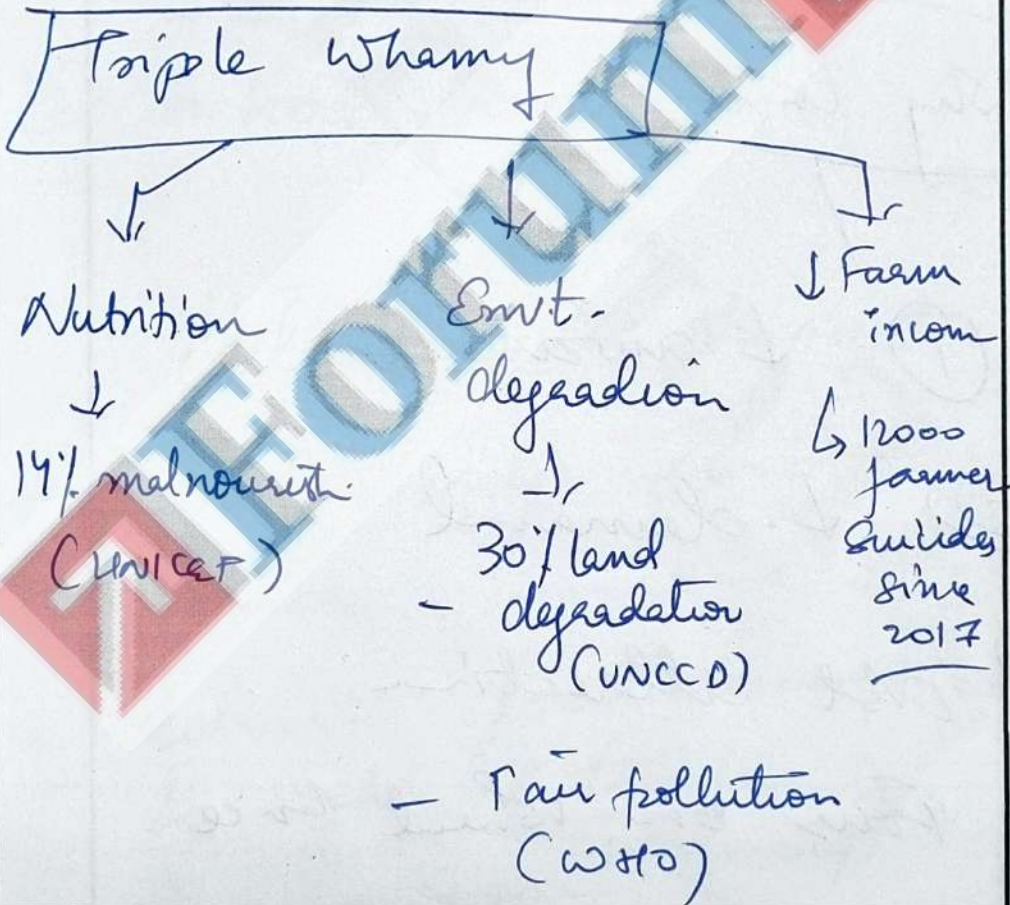 Triple Whamy
Nutrition
14% malnourish.
(UNICEF)
Envt.
degradion
30% land
- degradation
(UNCCD)
- ↑ air pollution
(WHO)
↓ Farm
incom
↳ 12000
farmer
suicides
since
2017
Forum